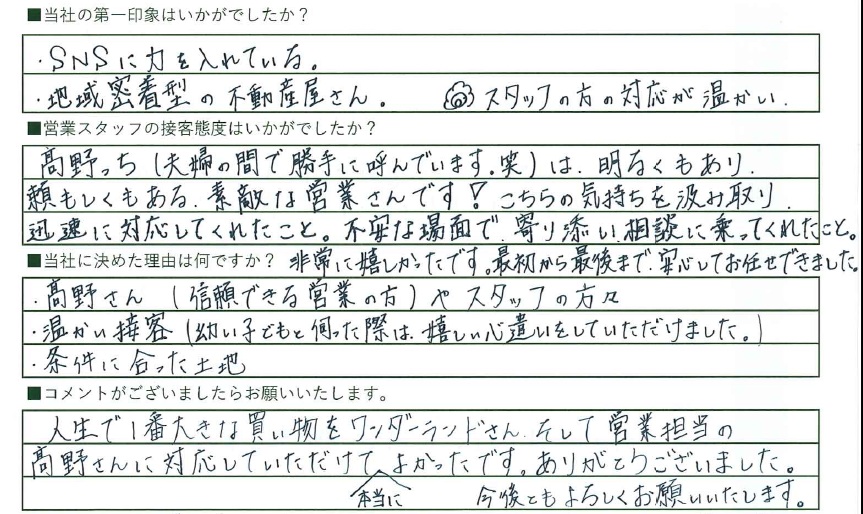 ■当社の第一印象はいかがでしたか？
・SNSに力を入れている。
・地域密着型の不動産屋さん。 スタッフの方の対応が温かい.
■営業スタッフの接客態度はいかがでしたか？
髙野っち(夫婦の間で勝手に呼んでいます.笑)は、明るくもあり、
頼もしくもある、素敵な営業さんです！こちらの気持ちを汲み取り、
迅速に対応してくれたこと。不安な場面で、寄り添い相談に乗ってくれたこと。
■当社に決めた理由は何ですか？ 非常に嬉しかったです。最初から最後まで、安心してお任せできました。
・髙野さん (信頼できる営業の方)やスタッフの方々
・温かい接客(幼い子どもと伺った際は、嬉しい心遣いをしていただけました。)
・条件に合った土地
■コメントがございましたらお願いいたします。
人生で1番大きな買い物をワンダーランドさん、そして営業担当の
髙野さんに対応していただけて、よかったです。ありがとうございました。
本当に 今後ともよろしくお願いいたします。